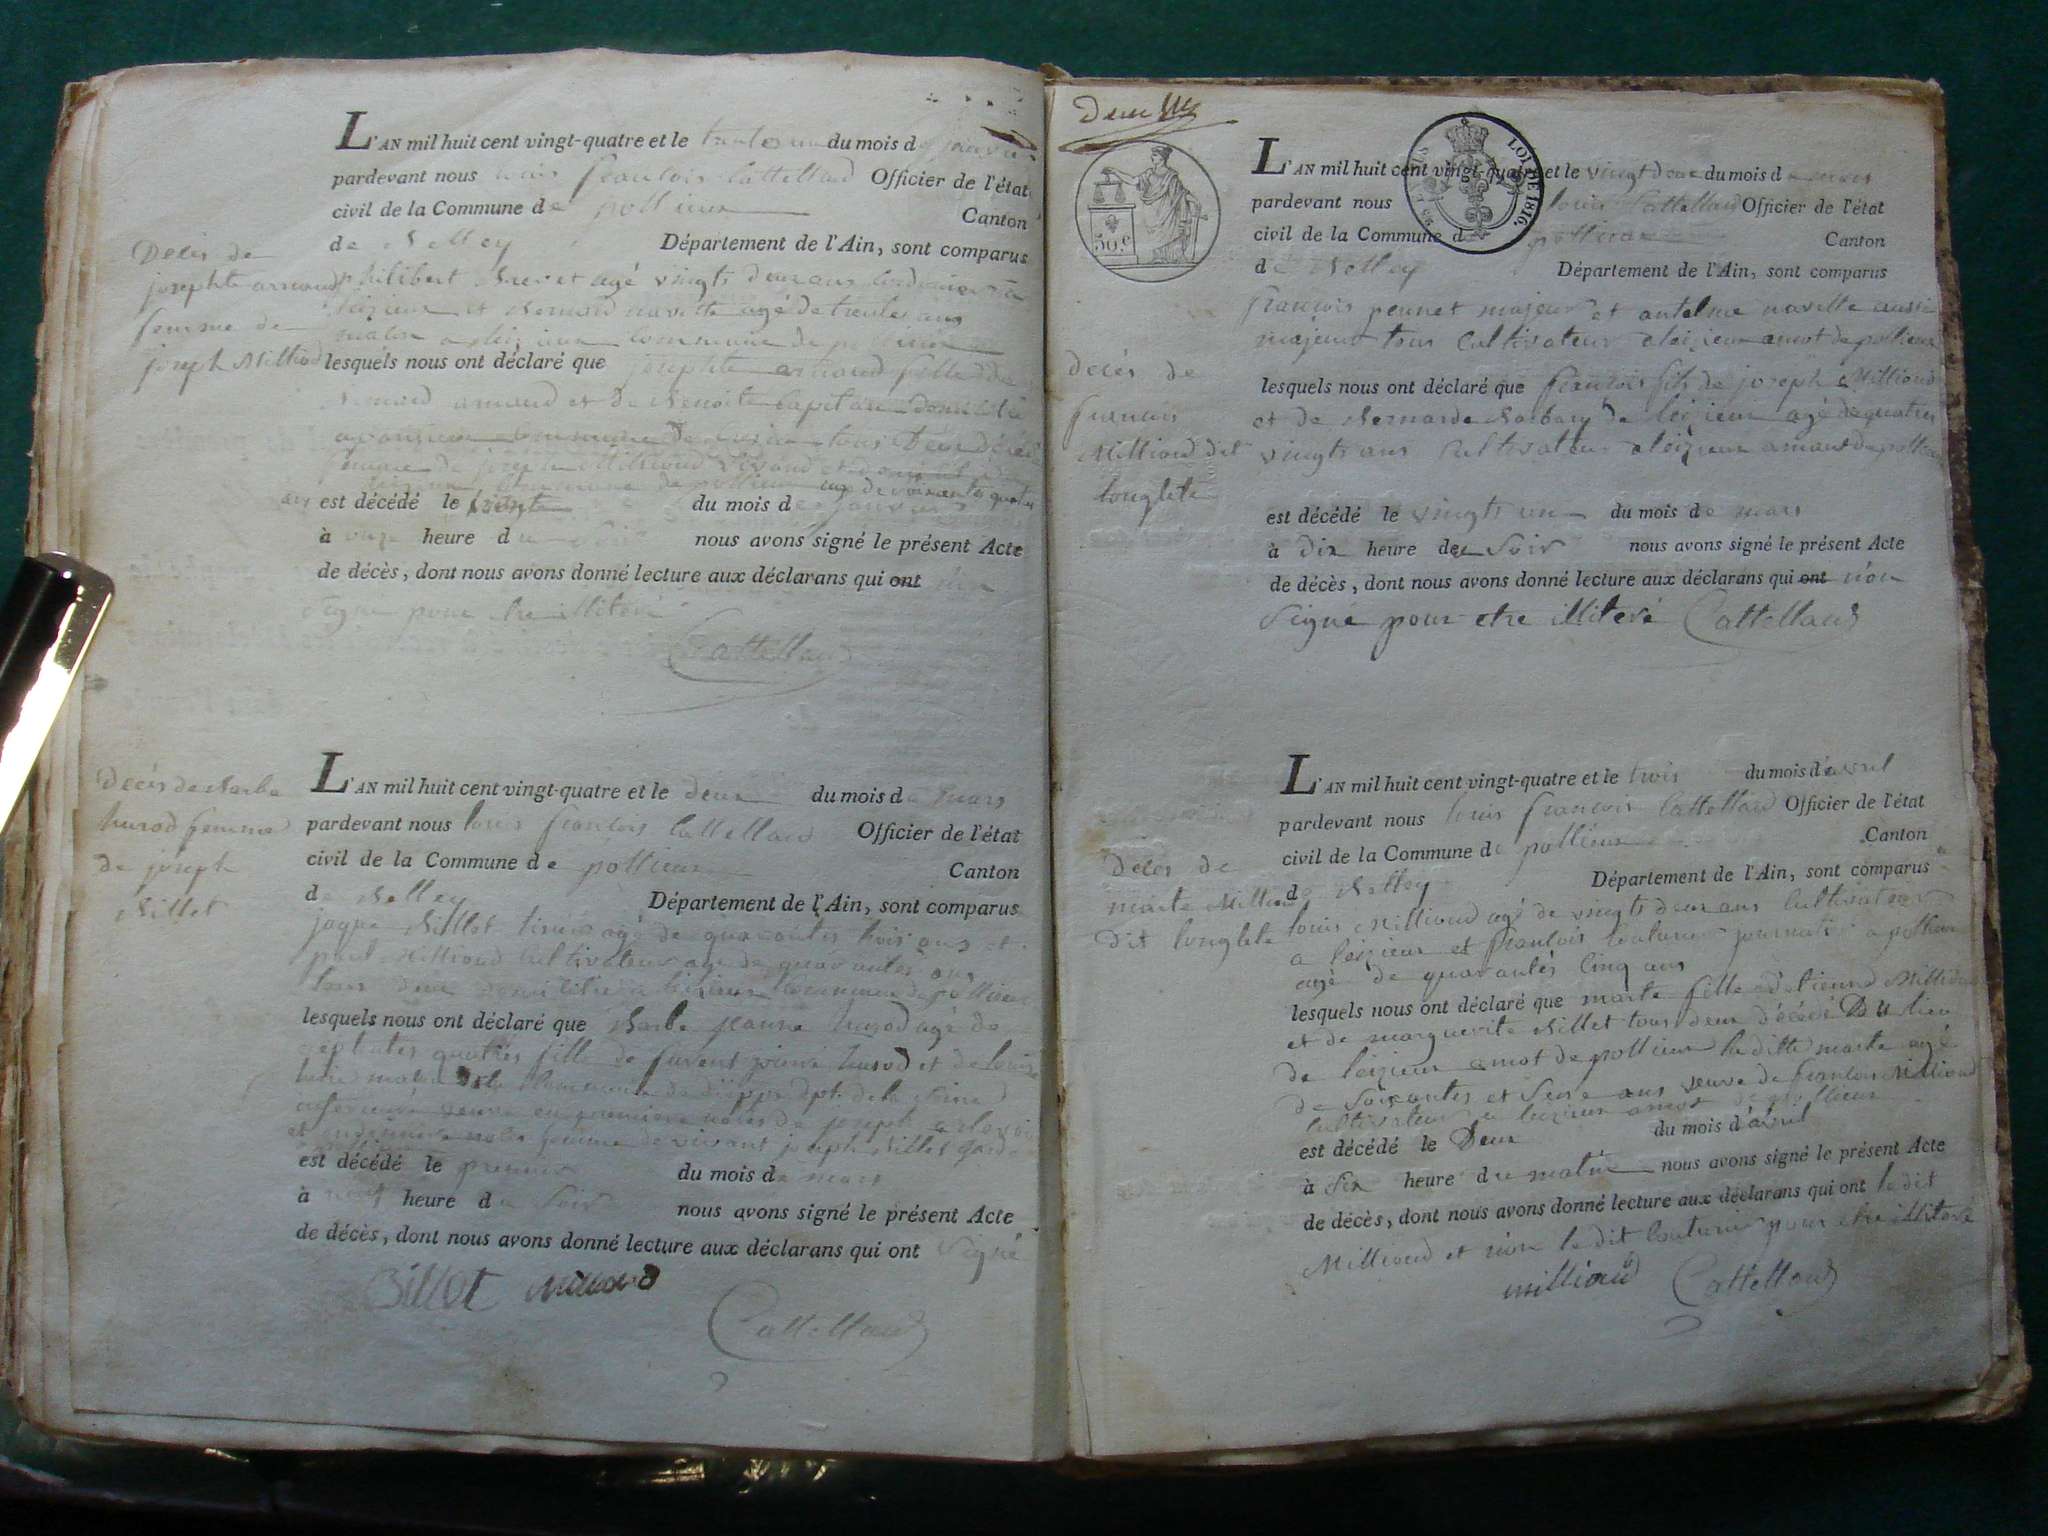 L'AN mil huit cent vingt-quatre et le trente un du mois de janvier
pardevant nous louis francois Cattelland Officier de l'état
civil de la Commune de pollieux Canton
de Belley Département de l'Ain, sont comparus
Décés de
josephte arnaud
femme de
joseph Milliod
philibert agé vingts deux ans
et Bernard navette agé de trente ans
commune de pollieux
lesquels nous ont déclaré que josephte arnaud fille de
Bernard arnaud et de Benoite Capitan
commune de tous deux décédé
femme de joseph Millioud
commune de pollieux agé de soixantes quatre
ans est décédé le trente du mois de janvier
à onze heure du soir nous avons signé le présent Acte
de décès, dont nous avons donné lecture aux déclarans qui ont non
signé pour etre illiteré
Cattelland
Décés de Barbe
hurod femme
de joseph
Billet
L'AN mil huit cent vingt-quatre et le deux du mois de mars
pardevant nous louis francois Cattelland Officier de l'état
civil de la Commune de pollieux Canton
de Belley Département de l'Ain, sont comparus
jaque Billet agé de quarantes trois ans et
paul Millioud Cultivateur agé de quarantes ans
tous deux domicilié a leizieux commune de pollieux
lesquels nous ont déclaré que Barbe jeanne hurod agé de
septantes quatres fille de hurod et de louise
commune de dieppe dpt. de la seine
veuve en premiere noces de joseph
femme de vivant joseph Billet
est décédé le premier du mois de mars
à neuf heure du soir nous avons signé le présent Acte
de décès, dont nous avons donné lecture aux déclarans qui ont signé
Billet millioud
Cattelland
Deux
50 c
LOI DE 1816.
L'AN mil huit cent vingt-quatre et le vingt deux du mois de mars
pardevant nous louis Cattelland Officier de l'état
civil de la Commune de pollieux Canton
de Belley Département de l'Ain, sont comparus
francois pernet majeur et antelme navette aussi
majeur tous Cultivateur a leizieux amot de pollieux
Décés de
francois
Millioud dit
longlete
lesquels nous ont déclaré que francois fils de joseph Millioud
et de Bernarde Barbary de leizieux agé de quatres
vingts ans Cultivateur a leizieux amaut de pollieux
est décédé le vingts un du mois de mars
à dix heure de soir nous avons signé le présent Acte
de décès, dont nous avons donné lecture aux déclarans qui ont non
signé pour etre illiteré Cattelland
L'AN mil huit cent vingt-quatre et le trois du mois d'avril
pardevant nous louis francois Cattelland Officier de l'état
civil de la Commune de pollieux Canton
de Belley Département de l'Ain, sont comparus
Décés de
marte Millioud
dit longlete
louis Millioud agé de vingts deux ans Cultivateur
a leizieux et francois Couturier journalié a pollieux
agé de quarantes cinq ans
lesquels nous ont déclaré que marte fille d'etienne Millioud
et de marguerite Billet tous deux décédé Du lieu
de leizieux amot de pollieux la ditte marte agé
de soixantes et seise ans veuve de francois Millioud
Cultivateur a leizieux amot de pollieux
est décédé le Deux du mois d'avril
à six heure du matin nous avons signé le présent Acte
de décès, dont nous avons donné lecture aux déclarans qui ont le dit
Millioud et non le dit Couturier pour etre illiteré
millioud Cattelland